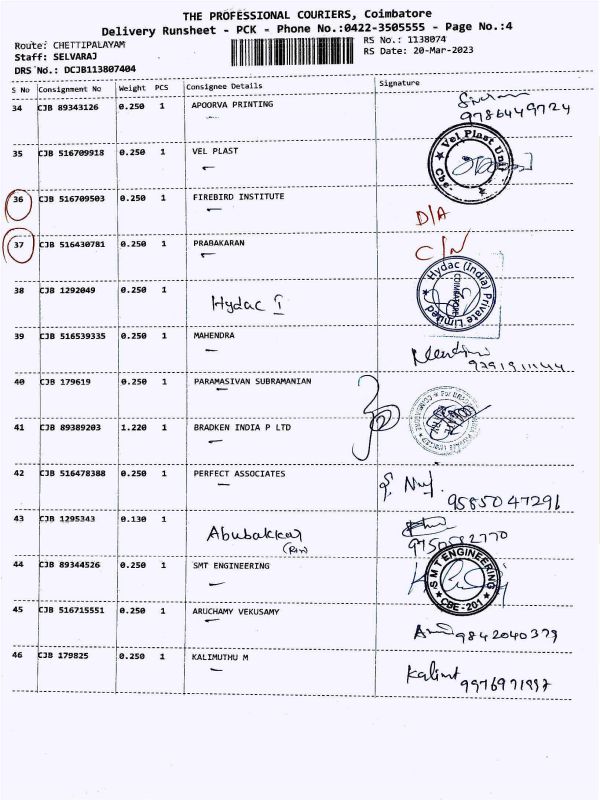 THE PROFESSIONAL COURIERS, Coimbatore
Delivery Runsheet - PCK - Phone No.:0422-3505555 - Page No.:4
Route: CHETTIPALAYAM
Staff: SELVARAJ
DRS No.: DCJB113807404
RS No.: 1138074
RS Date: 20-Mar-2023
S No Consignment No Weight PCS Consignee Details Signature
34 CJB 89343126 0.250 1 APOORVA PRINTING
9786449724
35 CJB 516709918 0.250 1 VEL PLAST
Vel Plast Unit Cbe.
36 CJB 516709503 0.250 1 FIREBIRD INSTITUTE
D/A
37 CJB 516430781 0.250 1 PRABAKARAN
C/N
38 CJB 1292049 0.250 1 Hydac I
Hydac (India) Private Limited
39 CJB 516539335 0.250 1 MAHENDRA
40 CJB 179619 0.250 1 PARAMASIVAN SUBRAMANIAN
41 CJB 89389203 1.220 1 BRADKEN INDIA P LTD
42 CJB 516478388 0.250 1 PERFECT ASSOCIATES
9585047291
43 CJB 1295343 0.130 1 Abubakkar
9750582770
44 CJB 89344526 0.250 1 SMT ENGINEERING
SMT ENGINEERING CBE-201
45 CJB 516715551 0.250 1 ARUCHAMY VEKUSAMY
9842040379
46 CJB 179825 0.250 1 KALIMUTHU M
Kalimt